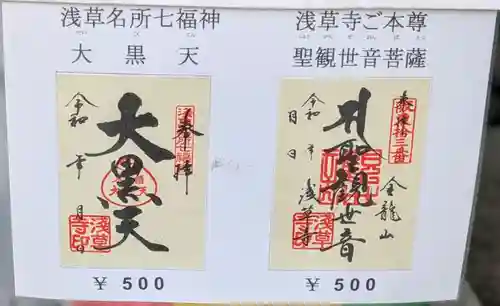 浅草名所七福神
大黒天
奉拝
大黒天
令和 年 月 日
浅草寺印
¥500
浅草寺ご本尊
聖観世音菩薩
坂東拾三番
聖観世音
令和 年 月 日
金龍山
浅草寺
¥500